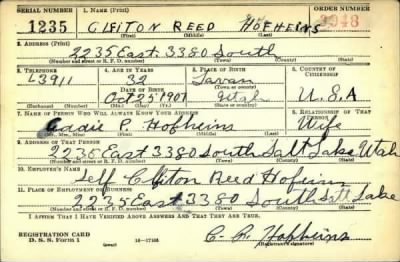 SERIAL NUMBER 1. NAME (Print) ORDER NUMBER
1235 CLEITON REED HOFHEINS
(First) (Middle) (Last)
2. ADDRESS (Print)
2235 East 3380 South
(Number and street or R. F. D. number) (Town) (County) (State)
3. TELEPHONE 4. AGE IN YEARS 5. PLACE OF BIRTH 6. COUNTRY OF CITIZENSHIP
L3911 32 Javan
DATE OF BIRTH
Oct 25 1907 Utah U.S.A
(Mo.) (Day) (Yr.) (State or country)
7. NAME OF PERSON WHO WILL ALWAYS KNOW YOUR ADDRESS 8. RELATIONSHIP OF THAT PERSON
P. Hofheins Wife
(Mr., Mrs., Miss) (First) (Middle) (Last)
9. ADDRESS OF THAT PERSON
2235 East 3380 South Salt Lake Utah
(Number and street or R. F. D. number) (Town) (County) (State)
10. EMPLOYER'S NAME
Self Reed Hofheins
11. PLACE OF EMPLOYMENT OR BUSINESS
2235 East 3380 South Salt Lake
(Number and street or R. F. D. number) (Town) (County) (State)
I AFFIRM THAT I HAVE VERIFIED ABOVE ANSWERS AND THAT THEY ARE TRUE.
REGISTRATION CARD
D. S. S. FORM 1 (over) 16—17105 C. R. Hofheins
(Registrant's signature)